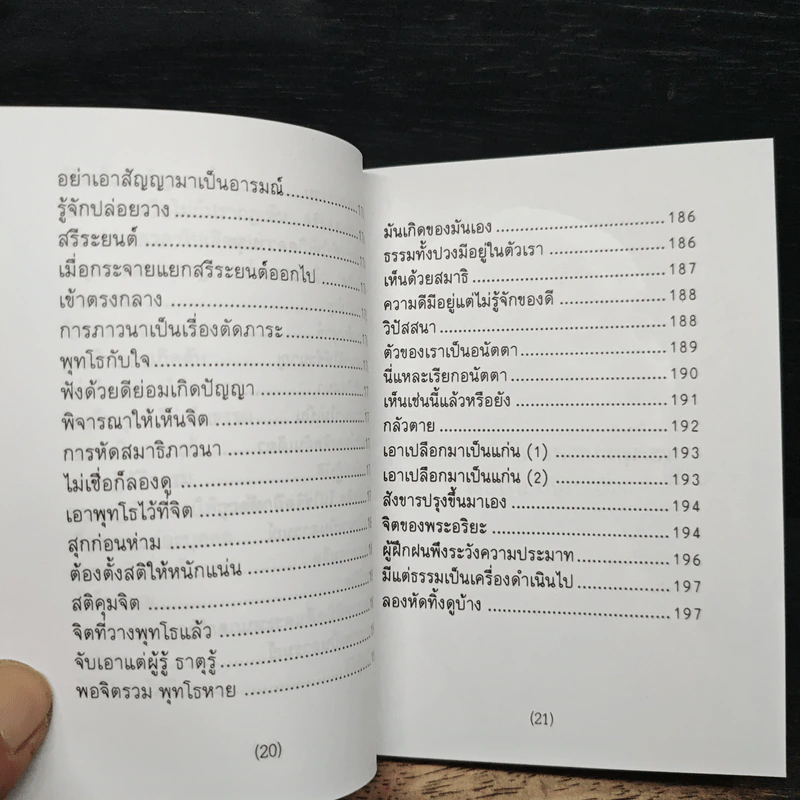 อย่าเอาสัญญามาเป็นอารมณ์
รู้จักปล่อยวาง
สรีระยนต์
เมื่อกระจายแยกสรีระยนต์ออกไป
เข้าตรงกลาง
การภาวนาเป็นเรื่องตัดภาระ
พุทโธกับใจ
ฟังด้วยดีย่อมเกิดปัญญา
พิจารณาให้เห็นจิต
การหัดสมาธิภาวนา
ไม่เชื่อก็ลองดู
เอาพุทโธไว้ที่จิต
สุกก่อนห่าม
ต้องตั้งสติให้หนักแน่น
สติคุมจิต
จิตที่วางพุทโธแล้ว
จับเอาแต่ผู้รู้ ธาตุรู้
พอจิตรวม พุทโธหาย
(20)
มันเกิดของมันเอง 186
ธรรมทั้งปวงมีอยู่ในตัวเรา 186
เห็นด้วยสมาธิ 187
ความดีมีอยู่แต่ไม่รู้จักของดี 188
วิปัสสนา 188
ตัวของเราเป็นอนัตตา 189
นี่แหละเรียกอนัตตา 190
เห็นเช่นนี้แล้วหรือยัง 191
กลัวตาย 192
เอาเปลือกมาเป็นแก่น (1) 193
เอาเปลือกมาเป็นแก่น (2) 193
สังขารปรุงขึ้นมาเอง 194
จิตของพระอริยะ 194
ผู้ฝึกฝนพึงระวังความประมาท 196
มีแต่ธรรมเป็นเครื่องดำเนินไป 197
ลองหัดทิ้งดูบ้าง 197
(21)